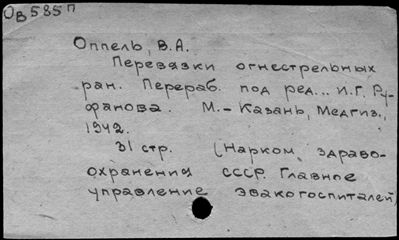 Ов585п
Оппель, В.А.
Перевязки огнестрельных
ран. Перераб. под ред... И.Г. Ру-
фанова. М.-Казань, Медгиз.,
1942.
31 стр. (Нарком. здраво-
охранения СССР. Главное
управление эвакогоспиталей)